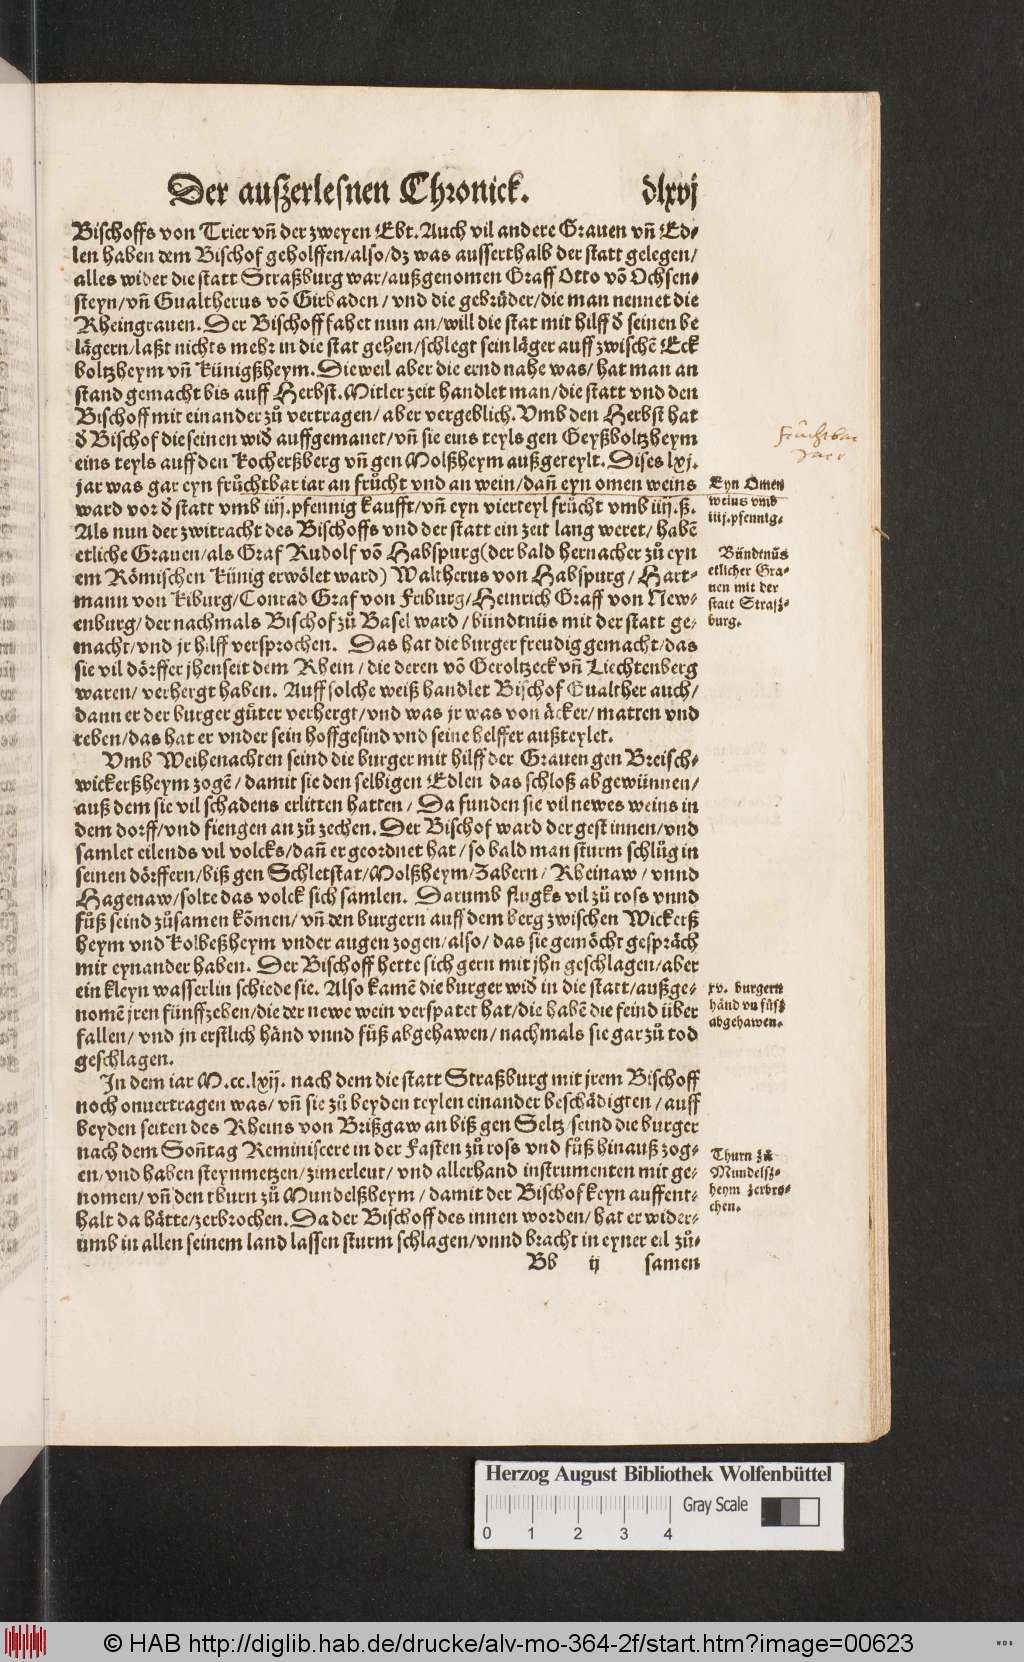 Der auszerlesnen Chronick. dlxvj
Bischoffs von Trier vñ der zweyen Ebt. Auch vil andere Grauen vñ Ed-
len haben dem Bischof geholffen/also/dz was ausserthalb der statt gelegen/
alles wider die statt Straßburg war/außgenomen Graff Otto võ Ochsen-
steyn/vñ Gualtherus võ Girbaden/ vnd die gebrüder/die man nennet die
Rheingrauen. Der Bischoff fahet nun an/will die stat mit hilff d̕ seinen be
lägern/laßt nichts mehr in die stat gehen/schlegt sein läger auff zwischẽ Eck
boltzheym vñ Künigßheym. Dieweil aber die ernd nahe was/ hat man an
stand gemacht bis auff Herbst. Mitler zeit handlet man/die statt vnd den
Bischoff mit einander zů vertragen/ aber vergeblich. Vmb den Herbst hat
d̕ Bischof die seinen wid̕ auffgemanet/vñ sie eins teyls gen Geyßboltzheym
eins teyls auff den Kocherßberg vñ gen Molßheym außgeteylt. Dises lxj.
jar was gar eyn frůchtbar iar an frücht vnd an wein/dañ eyn omen weins
ward vor d̕ statt vmb iiij.pfennig kaufft/vñ eyn vierteyl frücht vmb iiij.ß.
Als nun der zwitracht des Bischoffs vnd der statt ein zeit lang weret/ habẽ
etliche Grauen/als Graf Rudolf võ Habspurg(der bald hernacher zů eyn
em Römischen Künig erwölet ward) Waltherus von Habspurg/ Hart-
mann von Kiburg/Conrad Graf von Friburg/Heinrich Graff von New-
enburg/ der nachmals Bischof zů Basel ward/ bündtnüs mit der statt ge-
macht/vnd jr hilff versprochen. Das hat die burger freudig gemacht/das
sie vil dörffer jhenseit dem Rhein/ die deren võ Geroltzeck vñ Liechtenberg
waren/ verhergt haben. Auff solche weiß handlet Bischof Gualther auch/
dann er der burger güter verhergt/vnd was jr was von äcker/ matten vnd
reben/das hat er vnder sein hoffgesind vnd seine helffer außteylet.
Vmb Weihenachten seind die burger mit hilff der Grauen gen Breisch-
wickerßheym zogẽ/ damit sie den selbigen Edlen das schloß abgewünnen/
auß dem sie vil schadens erlitten hatten/ Da funden sie vil newes weins in
dem dorff/vnd fiengen an zů zechen. Der Bischof ward der gest innen/vnd
samlet eilends vil volcks/dañ er geordnet hat/ so bald man sturm schlüg in
seinen dörffern/biß gen Schletstat/Molßheym/Zabern/ Rheinaw/ vnnd
Hagenaw/solte das volck sich samlen. Darumb flugks vil zů ross vnnd
fůß seind zůsamen kõmen/ vñ den burgern auff dem berg zwischen Wickerß
heym vnd Kolbeßheym vnder augen zogen/also/ das sie gemöcht gespräch
mit eynander haben. Der Bischoff hette sich gern mit jhn geschlagen/aber
ein kleyn wasserlin schiede sie. Also kamẽ die burger wid̕ in die statt/außge-
nomẽ jren fünffzehen/die der newe wein verspatet hat/die habẽ die feind über
fallen/ vnd jn erstlich händ vnnd füß abgehawen/ nachmals sie gar zů tod
geschlagen.
In dem iar M.cc.lxij. nach dem die statt Straßburg mit jrem Bischoff
noch onvertragen was/ vñ sie zů beyden teylen einander beschädigten/ auff
beyden seiten des Rheins von Brißgaw an biß gen Seltz/seind die burger
nach dem Soñtag Reminiscere in der Fasten zů ross vnd fůß hinauß zog-
en/vnd haben steynmetzen/zimerleut/ vnd allerhand instrumenten mit ge-
nomen/ vñ den thurn zů Mundelßheym/ damit der Bischof keyn auffent-
halt da hätte/zerbrochen. Da der Bischoff des innen worden/ hat er wider-
umb in allen seinem land lassen sturm schlagen/vnnd bracht in eyner eil zů-
Bb ij samen
früchtbar
Jaer
Eyn Omen
weins vmb
iiij.pfennig.
Bündtnüs
etlicher Gra-
uen mit der
statt Strasz-
burg.
xv. burgern
händ vn füsz
abgehawen.
Thurn zů
Mundelsz-
heym zerbro-
chen.
Herzog August Bibliothek Wolfenbüttel
Gray Scale
0 1 2 3 4
© HAB http://diglib.hab.de/drucke/alv-mo-364-2f/start.htm?image=00623